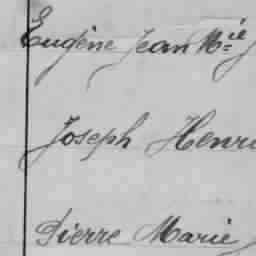 Eugène Jean Mie
Joseph Henri
Pierre Marie